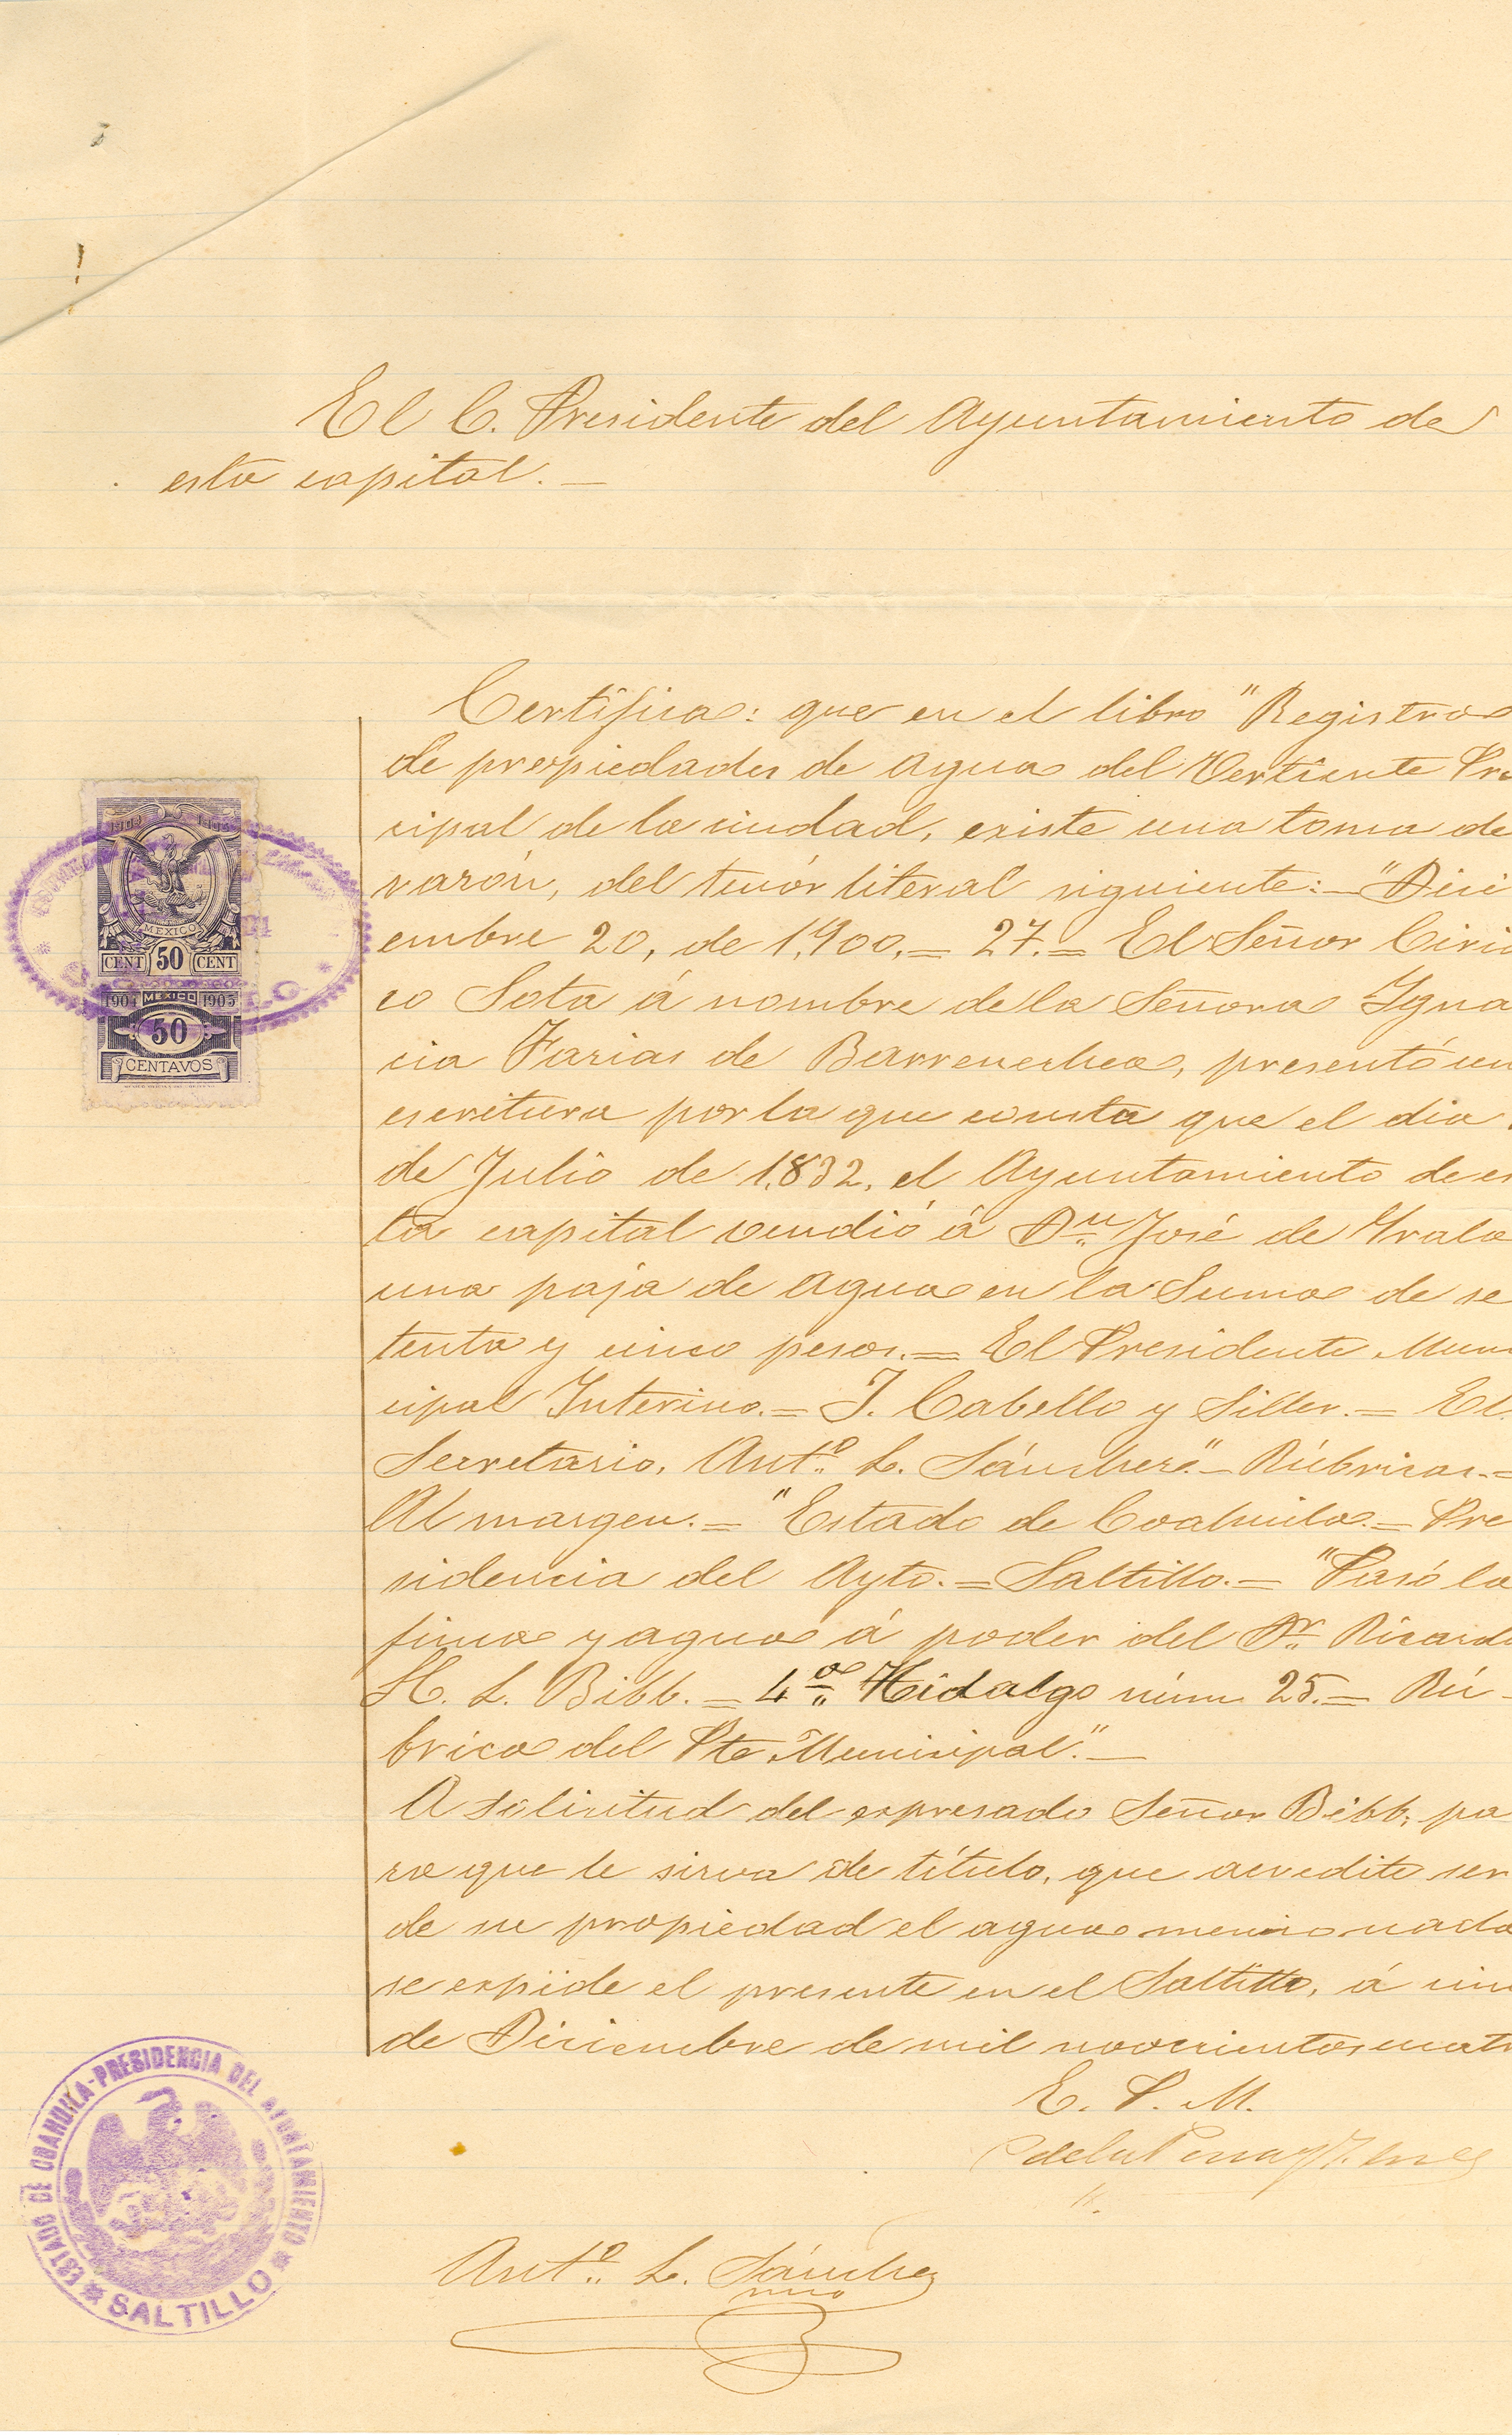 El C. Presidente del Ayuntamiento de
esta capital. —
Certifica: que en el libro "Registro
de propiedades de agua del Vertiente Pri
cipal de la ciudad, existe una toma de
razón, del tenór literal siguiente:— "Dici
embre 20, de 1,900.= 27.= El Señor Ciria
co Sota á nombre de la Señora Ygna
cia Farias de Barrenechea, presentó un
escritura por la que consta que el dia
de Julio de 1,832, el Ayuntamiento de es
ta capital vendió á Dn. José de Yrala
una paja de agua en la suma de se
tenta y cinco pesos.= El Presidente Muni
cipal Interino.= J. Cabello y Siller.= El
Secretario, Anto. L. Sánchez."— Rúbricas.=
Al margen.= "Estado de Coahuila.= Pre
sidencia del Ayto.= Saltillo.= "Pasó la
finca y agua á poder del Dr. Ricardo
H. L. Bibb.= 4a. Hidalgo núm 25.= Rú-
brica del Pte Municipal."—
A solicitud del expresado Señor Bibb, pa
ra que le sirva de título, que acredite ser
de su propiedad el agua mencionada
se expide el presente en el Saltillo, á cin
de Diciembre de mil novecientos cuatr
E. P. M.
Anto. L. Sánchez
srio
MEXICO
CENT 50 CENT
1904 MEXICO 1905
50
CENTAVOS
ESTADO DE COAHUILA-PRESIDENCIA DEL AYUNTAMIENTO
* SALTILLO *